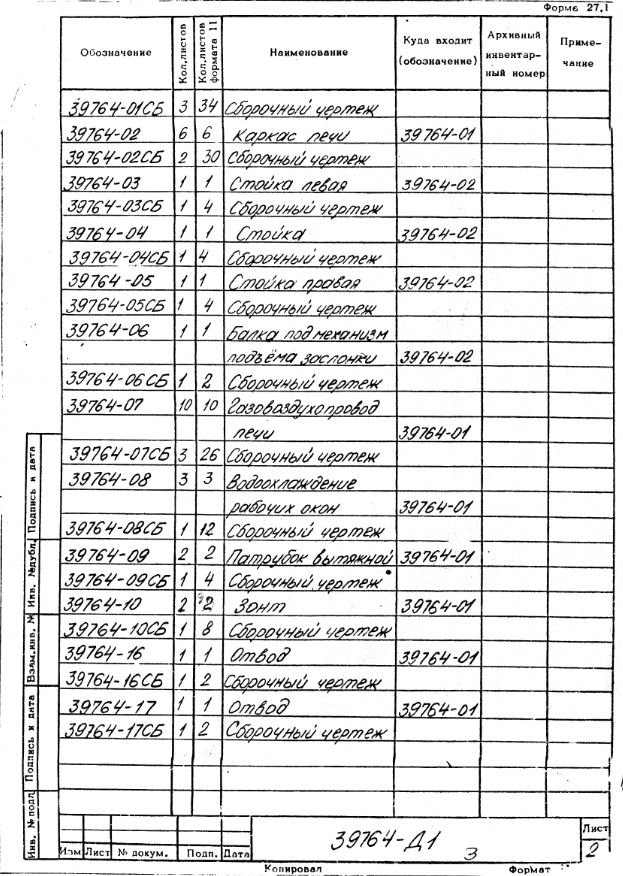 Форма 27.1
Обозначение Кол.листов Кол.листов формата 11 Наименование Куда входит (обозначение) Архивный инвентар-ный номер Приме-чание
39764-01СБ 3 34 Сборочный чертеж
39764-02 6 6 Каркас печи 39764-01
39764-02СБ 2 30 Сборочный чертеж
39764-03 1 1 Стойка левая 39764-02
39764-03СБ 1 4 Сборочный чертеж
39764-04 1 1 Стойка 39764-02
39764-04СБ 1 4 Сборочный чертеж
39764-05 1 1 Стойка правая 39764-02
39764-05СБ 1 4 Сборочный чертеж
39764-06 1 1 Балка под механизм
подъёма заслонки 39764-02
39764-06СБ 1 2 Сборочный чертеж
39764-07 10 10 Газоваздухопровод
печи 39764-01
39764-07СБ 3 26 Сборочный чертеж
39764-08 3 3 Водоохлаждение
рабочих окон 39764-01
39764-08СБ 1 12 Сборочный чертеж
39764-09 2 2 Патрубок вытяжной 39764-01
39764-09СБ 1 4 Сборочный чертеж
39764-10 2 2 Зонт 39764-01
39764-10СБ 1 8 Сборочный чертеж
39764-16 1 1 Отвод 39764-01
39764-16СБ 1 2 Сборочный чертеж
39764-17 1 1 Отвод 39764-01
39764-17СБ 1 2 Сборочный чертеж
Подпись и дата
Инв. №дубл.
Взам.инв. №
Подпись и дата
Инв. № подл
39764-Д1 3
Лист
2
Изм Лист № докум. Подп. Дата
Копировал Формат